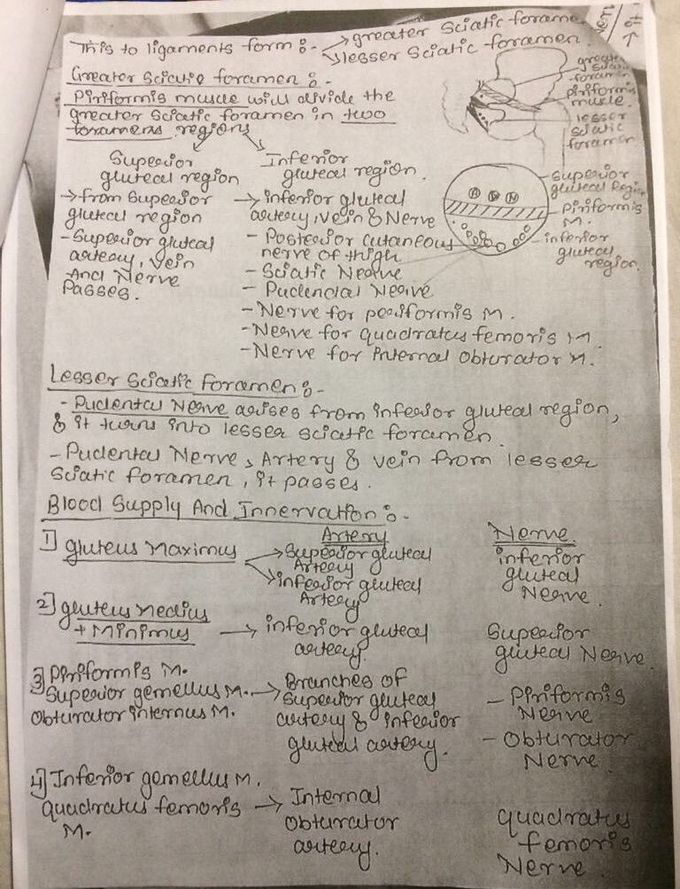 This to ligaments form :- → greater Sciatic forame
↘ lesser Sciatic foramen.
Greater Sciatic foramen :-
Piriformis muscle will divide the
greater Sciatic foramen in two
foramens regions
greater
Sciatic
foramen
Piriformis
muscle.
lesser
sciatic
foramen
Superior
gluteal region
Inferior
gluteal region.
→ from Superior
gluteal region
- Superior gluteal
artery, vein
And Nerve
Passes.
→ inferior gluteal
artery, vein & Nerve
- Posterior cutaneous
nerve of thigh
- Sciatic Nerve
- Pudendal Nerve
- Nerve for periformis M.
- Nerve for quadratus femoris M.
- Nerve for Internal Obturator M.
A V N
Superior
gluteal Region
Piriformis
M.
inferior
gluteal
region.
Lesser Sciatic Foramen :-
- Pudental Nerve arises from inferior gluteal region,
& it turns into lesser sciatic foramen.
- Pudental Nerve, Artery & vein from lesser
Sciatic foramen, it passes.
Blood Supply And Innervation :-
Artery
Nerve
1] gluteus Maximus
→ Superior gluteal
Artery
→ inferior gluteal
Artery
inferior
gluteal
Nerve.
2] gluteus Medius
+ Minimus
→ inferior gluteal
artery.
Superior
gluteal Nerve.
3] Piriformis M.
Superior gemellus M.
Obturator internus M.
→ Branches of
Superior gluteal
artery & inferior
gluteal artery.
- Piriformis
Nerve
- Obturator
Nerve.
4] Inferior gemellus M.
quadratus femoris
M.
→ Internal
Obturator
artery.
quadratus
femoris
Nerve